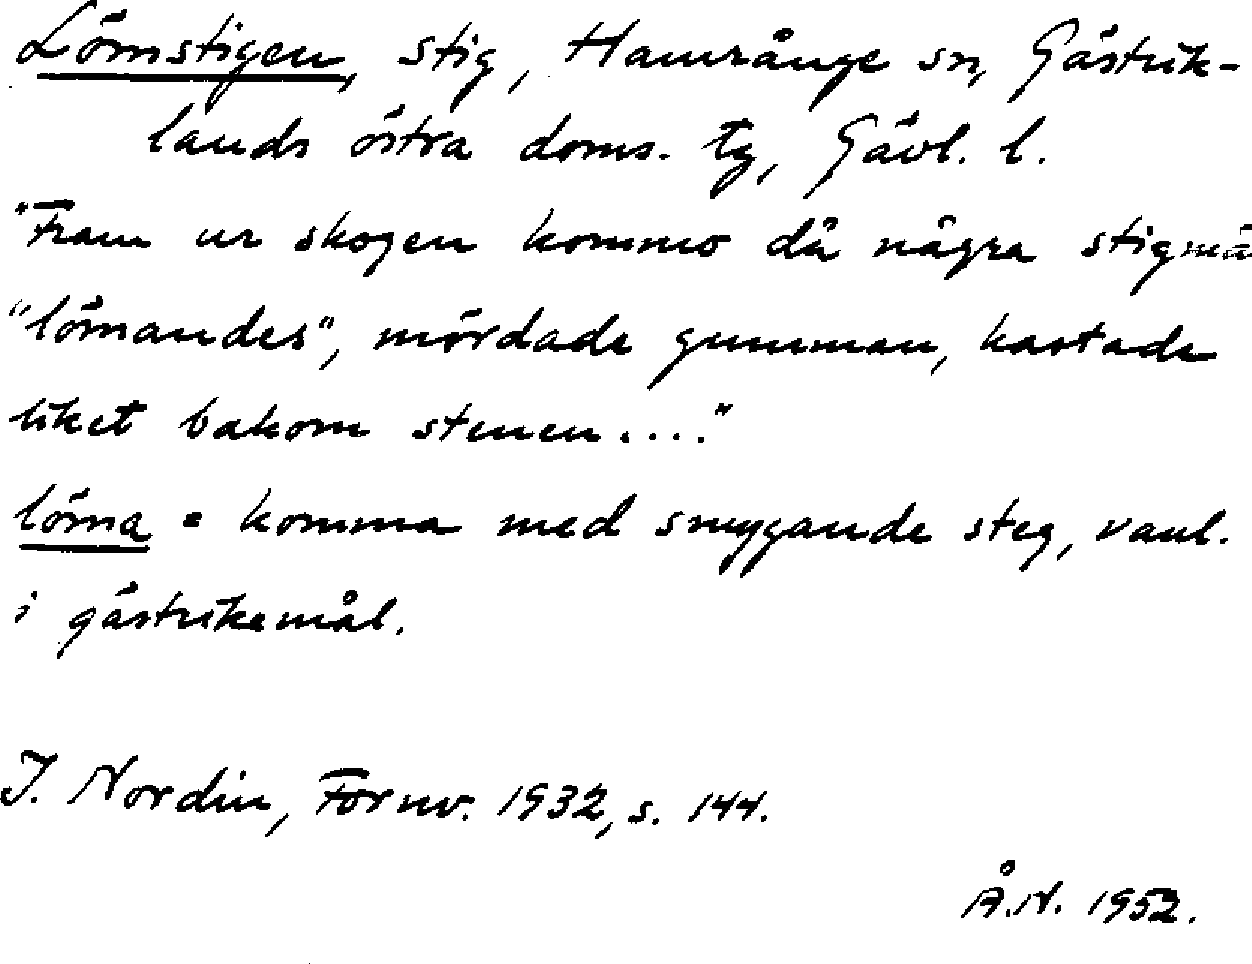 Lömstigen, stig, Hamrånge sn, Gästrik-
lands östra doms. tg, Gävl. l.
"Fram ur skogen kommo då några stigmä
"lömandes", mördade gumman, kastade
liket bakom stenen...."
löma = komma med smygande steg, vanl.
i gästrikemål.
J. Nordin, Fornv. 1932, s. 144.
Å.N. 1952.